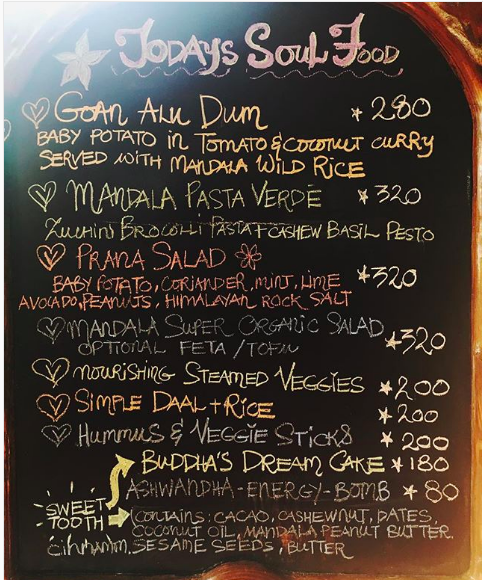 TODAYS SOUL FOOD
GOAN ALU DUM 280
BABY POTATO in TOMATO & COCONUT CURRY
SERVED WITH MANDALA WILD RICE
MANDALA PASTA VERDE 320
ZUCHINI BROCOLLI PASTA + CASHEW BASIL PESTO
PRANA SALAD 320
BABY POTATO, CORIANDER, MINT, LIME
AVOCADO, PEANUTS, HIMALAYAN ROCK SALT
MANDALA SUPER ORGANIC SALAD 320
OPTIONAL FETA / TOFU
NOURISHING STEAMED VEGGIES 200
SIMPLE DAAL + RICE 200
HUMMUS & VEGGIE STICKS 200
BUDDHA'S DREAM CAKE 180
ASHWANDHA-ENERGY-BOMB 80
SWEET TOOTH
(CONTAINS: CACAO, CASHEWNUT, DATES,
COCONUT OIL, MANDALA PEANUT BUTTER.
Cinnamon, SESAME SEEDS, BUTTER